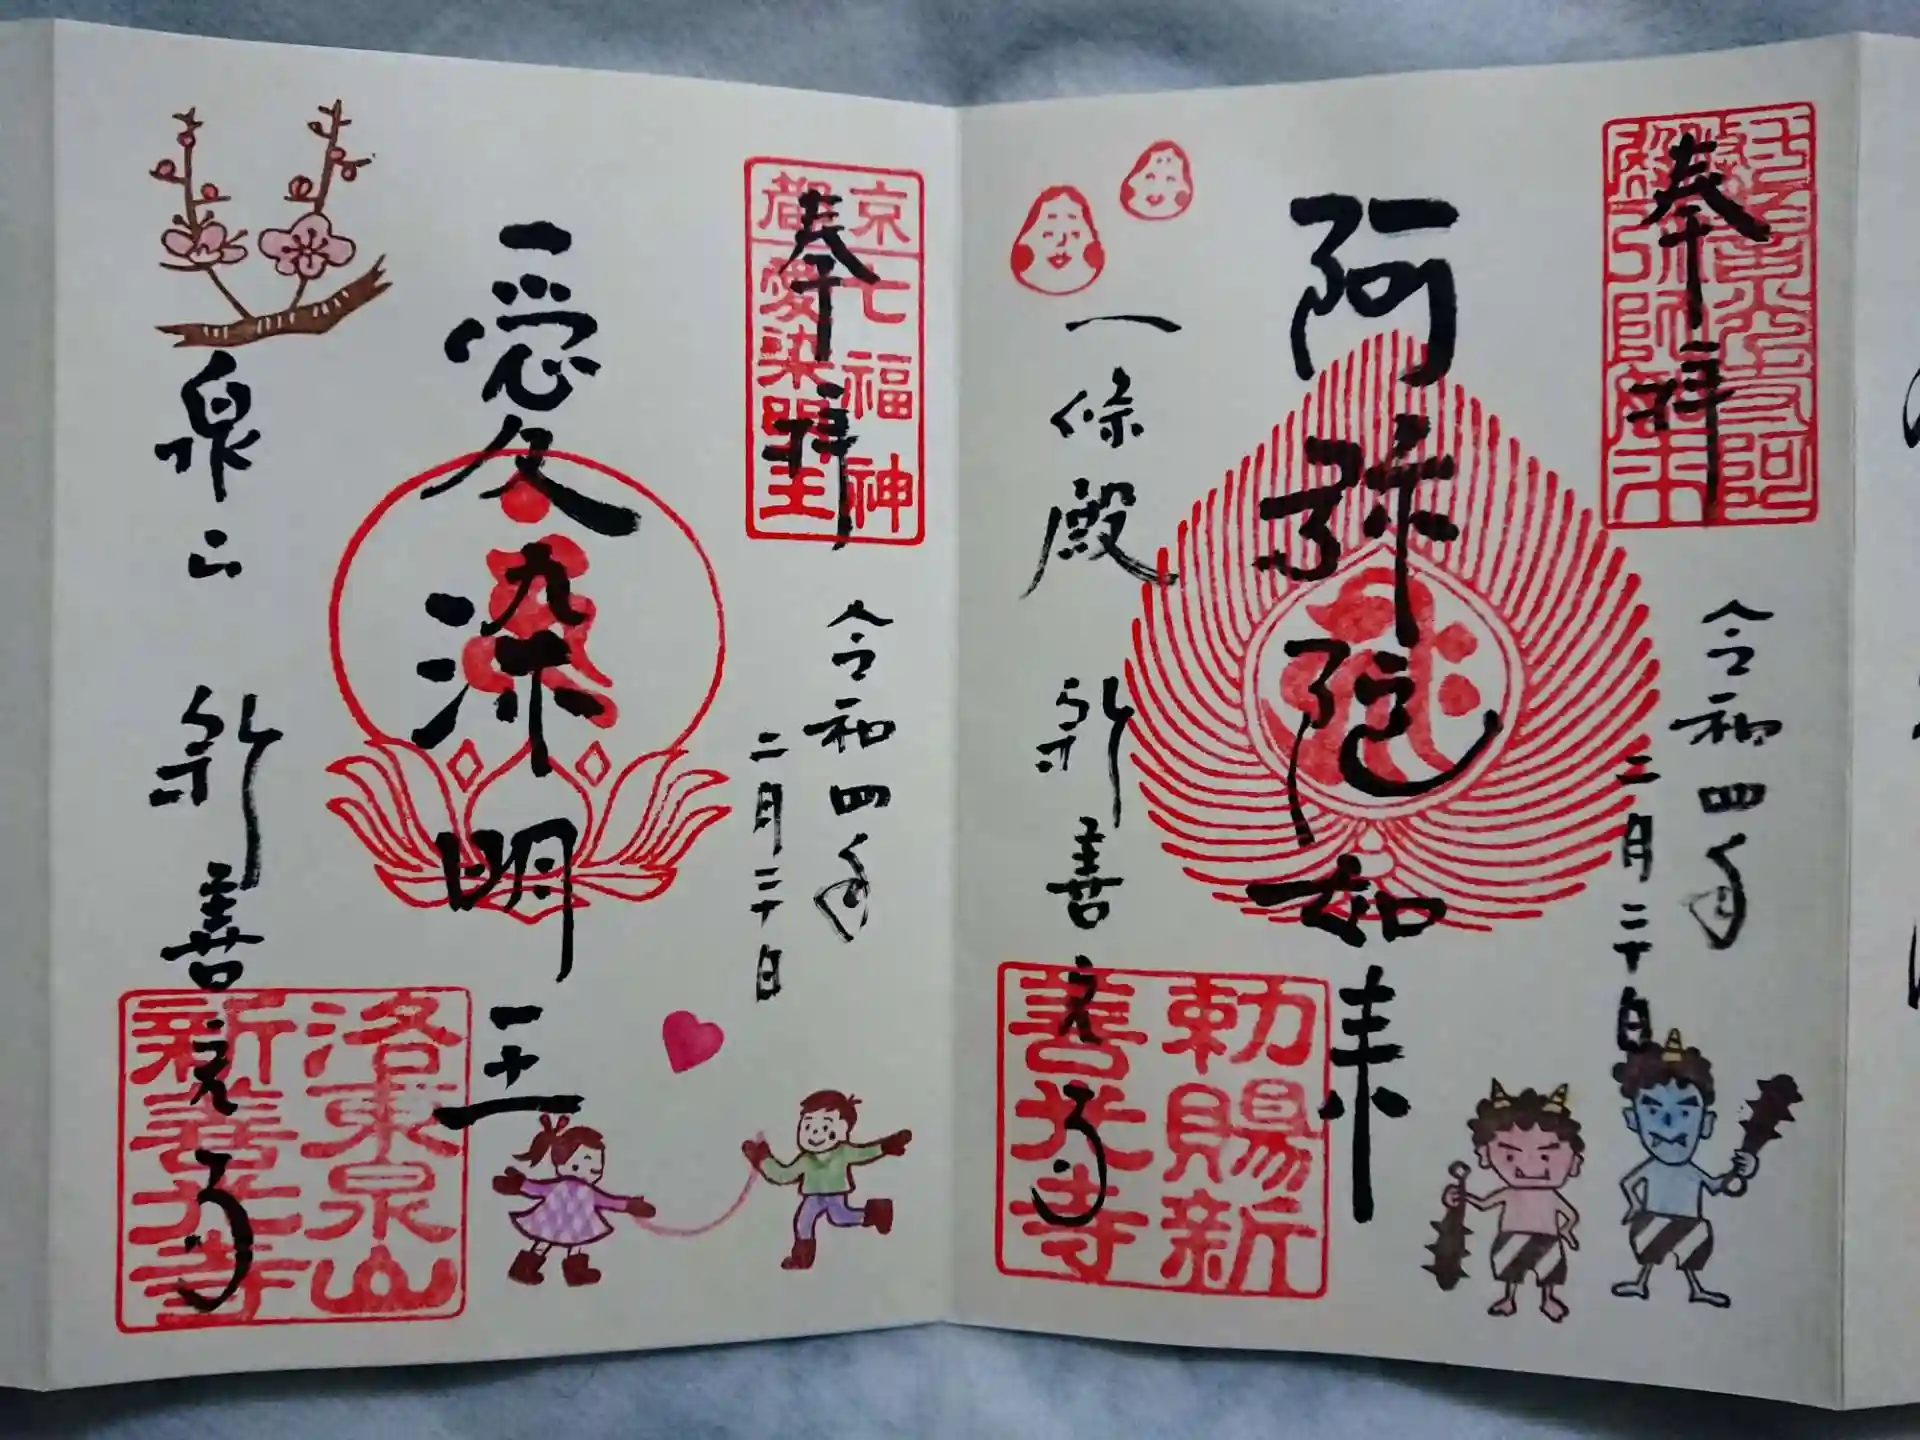 奉拝
阿弥陀如来
令和四年
二月二十日
一條殿 新善光寺
勅賜新
善光寺
奉拝
京七福神
都愛染明王
愛染明王
令和四年
二月二十日
泉山 新善光寺
洛東泉山
新善光寺